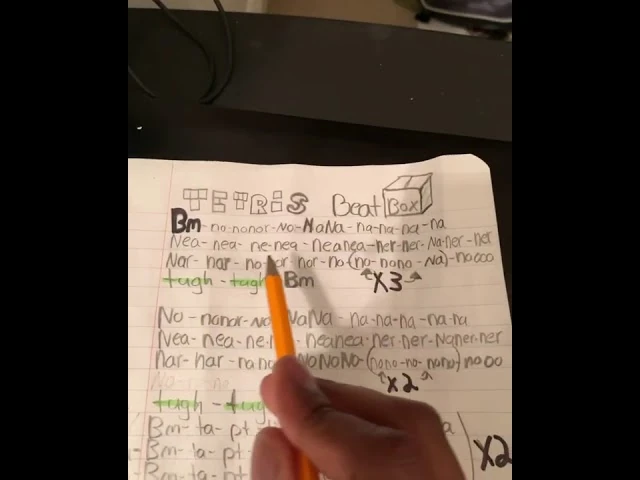 TETRIS Beat BOX
Bm-no-nonor-No-NaNa-na-na-na-na
Nea-nea-ne-nea-neanea-ner-ner-Na-ner-ner
Nar-nar-no-nor-nor-no-(no-nono-Na)-noooo
tugh-tugh Bm X3
No-nanar-No NaNa-na-na-na-na
Nea-nea-ne neanea-ner-ner-Naner-ner
nar-nar-nano NoNoNo-(nono-no-nono) nooo
X2
tugh-tug
Bm-ta-pt a
Bm-ta-pt X2
Bm-ta-pt